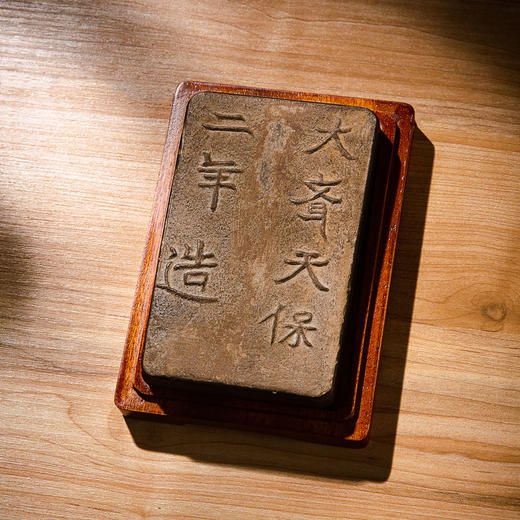 大齐天保
二年造